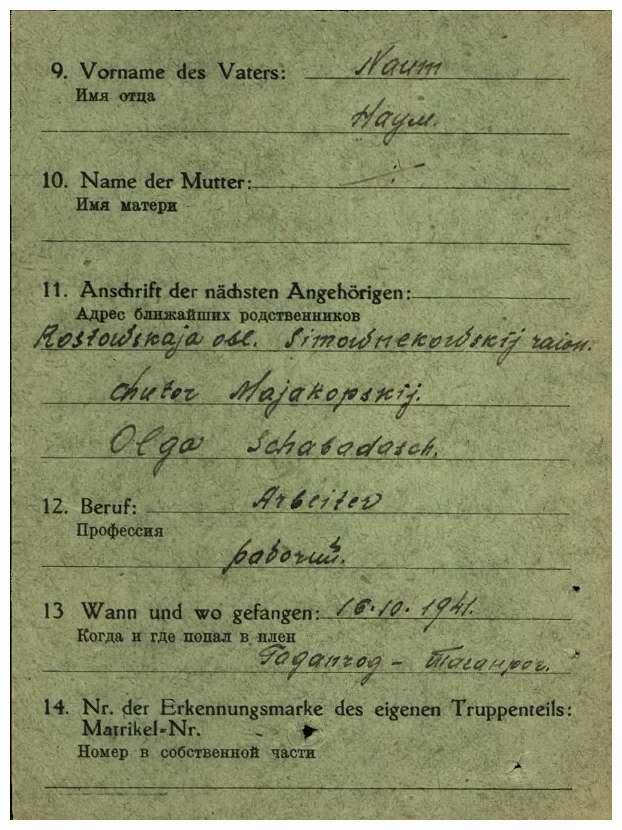 9. Vorname des Vaters: Naum
Имя отца
Наум.
10. Name der Mutter:
Имя матери
11. Anschrift der nächsten Angehörigen:
Адрес ближайших родственников
Rostowskaja obl. Simownekowskij raion.
chutor Majakopskij.
Olga Schabadasch.
12. Beruf: Arbeiter
Профессия
рабочий.
13 Wann und wo gefangen: 16.10.1941.
Когда и где попал в плен
Таганрог.
14. Nr. der Erkennungsmarke des eigenen Truppenteils:
Matrikel-Nr.
Номер в собственной части